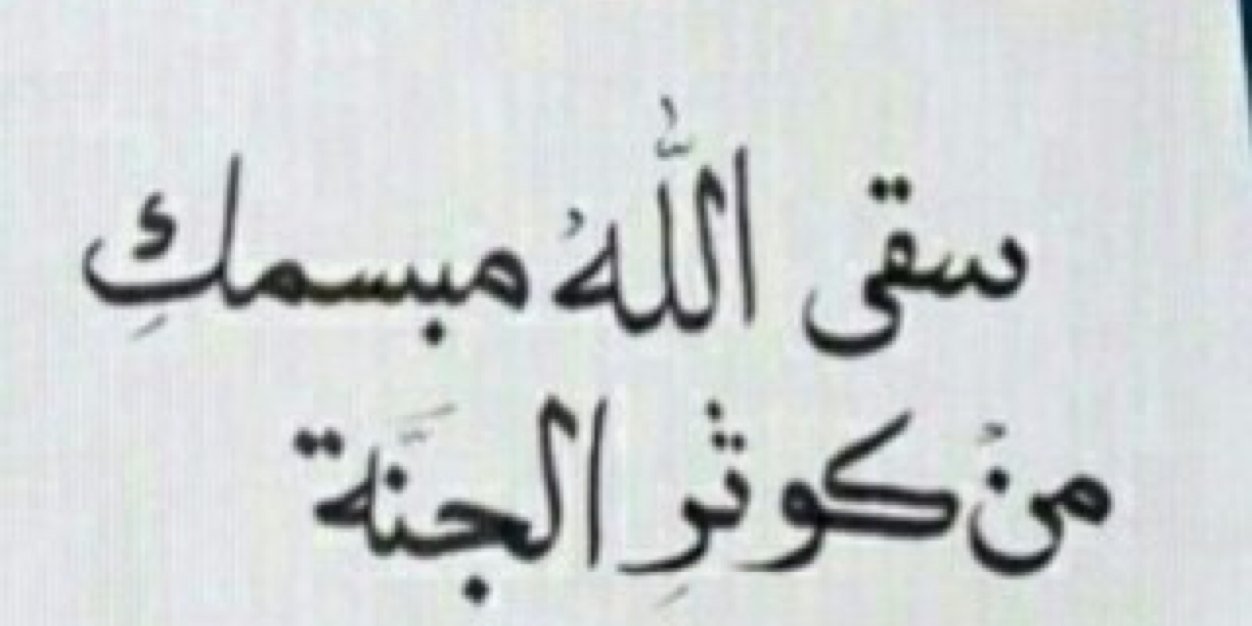 سقى اللّٰهُ مبسمكِ
من كوثرِ الجنَّة